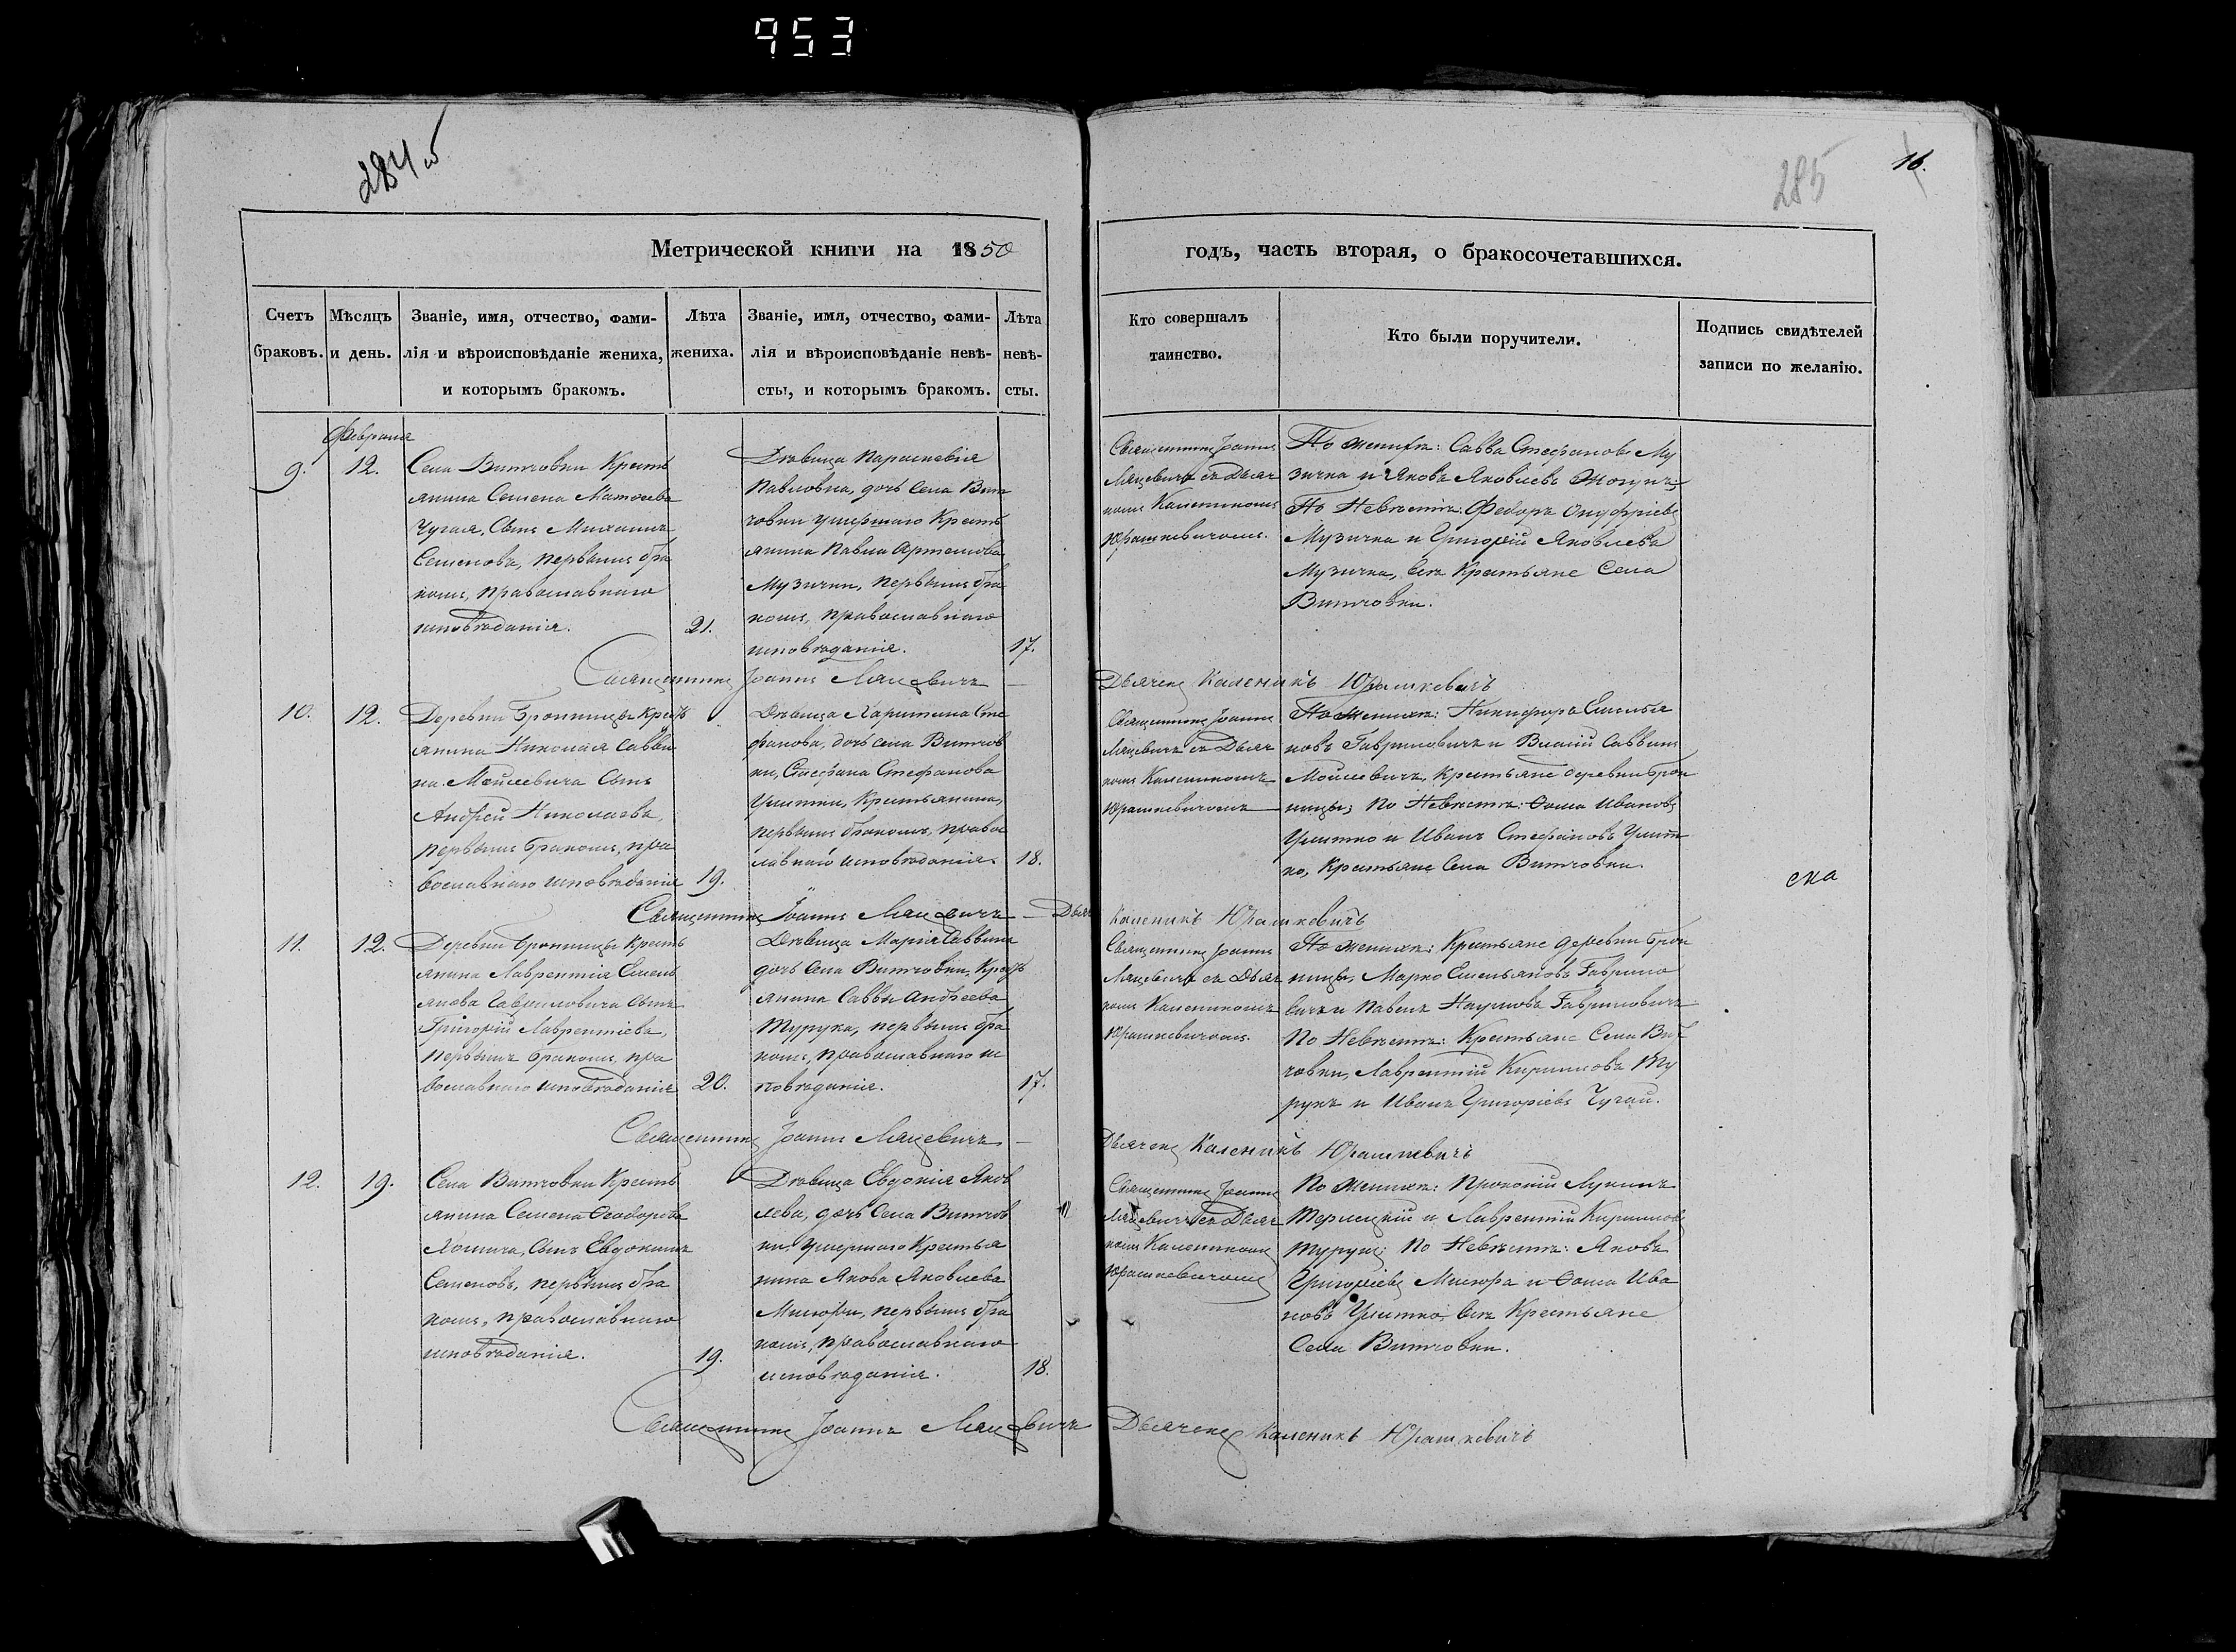 953
284 об
285
16.
Метрической книги на 1850
годъ, часть вторая, о бракосочетавшихся.
Счетъ браковъ.
Мѣсяцъ и день.
Званіе, имя, отчество, фами-
лія и вѣроисповѣданіе жениха,
и которымъ бракомъ.
Лѣта
жениха.
Званіе, имя, отчество, фами-
лія и вѣроисповѣданіе невѣ-
сты, и которымъ бракомъ.
Лѣта
невѣ-
сты.
Кто совершалъ
таинство.
Кто были поручители.
Подпись свидѣтелей
записи по желанію.
Февраля
9.
12.
Села Витчовки Кресть
янина Семена Матѳеева
Чугая, Сынъ Михаилъ
Семеновъ, первымъ бра
комъ, православнаго
исповѣданія.
21.
Дѣвица Параскевія
Павловна, дочь Села Вит
човки умершаго Кресть
янина Павла Артемова
Музычки, первымъ бра
комъ, православнаго
исповѣданія.
17.
Священникъ Іоаннъ
Мацевичъ съ Дьяч
комъ Каленикомъ
Юрашкевичомъ.
По женихѣ: Савва Стефановъ Му
зычка и Яковъ Яковлевъ
По Невѣстѣ: Федоръ Онуфріевъ
Музычка и Григорій Яковлевъ
Музычка, всѣ Крестьяне Села
Витчовки.
Священникъ Іоаннъ Мацевичъ —
Дьячекъ Каленикъ Юрашкевичъ
10.
12.
Деревни Бронницы Кресть
янина Николая Савви
на Мойсевича Сынъ
Андрей Николаевъ,
первымъ бракомъ, пра
вославнаго исповѣданія
19.
Дѣвица Харитина Сте
фанова, дочь села Витчов
ки, Стефана Стефанова
Улитки, Крестьянина,
первымъ бракомъ, право
славнаго исповѣданія.
18.
Священникъ Іоаннъ
Мацевичъ съ Дьяч
комъ Каленикомъ
Юрашкевичомъ
По женихѣ: Никифоръ Емелья
новъ Гавриловичъ и Власій Саввинъ
Мойсевичъ, Крестьяне деревни Брон
ницы; По Невѣстѣ: Ѳома Ивановъ
Улитко и Иванъ Стефановъ Улит
ко, Крестьяне Села Витчовки.
ска
Священникъ Іоаннъ Мацевичъ — Дьяч
Каленикъ Юрашкевичъ
11.
12.
Деревни Бронницы Кресть
янина Лаврентія Емель
янова Гавриловича Сынъ
Григорій Лаврентіевъ,
первымъ бракомъ, пра
вославнаго исповѣданія
20.
Дѣвица Марія Саввина
дочь Села Витчовки, Кресть
янина Саввы Андреева
Турука, первымъ бра
комъ, православнаго ис
повѣданія.
17.
Священникъ Іоаннъ
Мацевичъ съ Дьяч
комъ Каленикомъ
Юрашкевичомъ.
По женихѣ: Крестьяне деревни Брон
ницы, Марко Емельяновъ Гаврило
вичъ и Павелъ Наумовъ Гавриловичъ
По Невѣстѣ: Крестьяне Села Вит
човки, Лаврентій Кирилловъ Ту
рукъ и Иванъ Григоріевъ Чугай.
Священникъ Іоаннъ Мацевичъ —
Дьячекъ Каленикъ Юрашкевичъ
12.
19.
Села Витчовки Кресть
янина Семена Ѳеодорова
Хомича, Сынъ Евдокимъ
Семеновъ, первымъ бра
комъ, православнаго
исповѣданія.
19.
Дѣвица Евдокія Яков
лева, дочь Села Витчов
ки, Умершаго Крестья
нина Якова Яковлева
первымъ бра
комъ, православнаго
исповѣданія.
18.
Священникъ Іоаннъ
Мацевичъ съ Дьяч
комъ Каленикомъ
Юрашкевичомъ
По женихѣ: Прокопій Лукинъ
Терлецкій и Лаврентій Кирилловъ
Турукъ; По Невѣстѣ: Яковъ
Григоріевъ и Ѳома Ива
новъ Улитко, всѣ Крестьяне
Села Витчовки.
Священникъ Іоаннъ Мацевичъ
Дьячекъ Каленикъ Юрашкевичъ